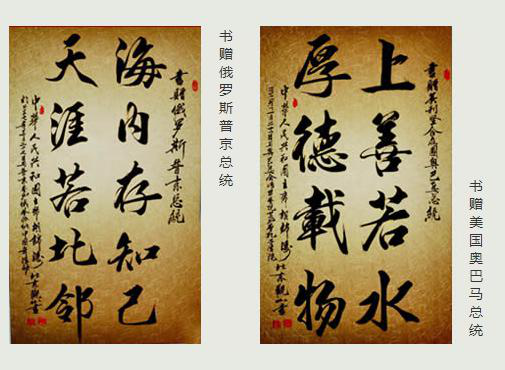 書贈俄罗斯普京总统
海内存知己
天涯若比邻
中华人民共和国主席胡锦涛
书赠俄罗斯普京总统
書贈美利坚合众国奥巴马总统
上善若水
厚德載物
中华人民共和国主席胡锦涛
书赠美国奥巴马总统